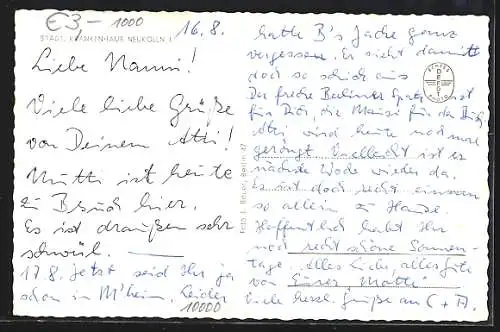 €3,- 1000
16.8.
STÄDT. KRANKENHAUS NEUKÖLLN I
Liebe Nanni!
Viele liebe Grüße
von Deinem Atti!
Mutti ist heute
zu Besuch hier.
Es ist draußen sehr
schwül.
17.8. Jetzt seid Ihr ja
schon in M'heim. Leider
10000
hatte B's Jacke ganz
vergessen. Es sieht damit
doch so schick aus
Der freche Berliner Spatz ist
für Dich, die Mausi für das B
Atti wird heute nochmal
geröngt. Vielleicht ist er
nächste Woche wieder da.
Es ist doch recht einsam
so allein zu Hause.
Hoffentlich habt Ihr
noch recht schöne Sonnen-
tage. Alles Liebe, alles Gute
von Eurer "Mutti"
Viele herzl. Grüße an C + A.
Foto J. Bauer, Berlin 47
ECHTES
FOTO